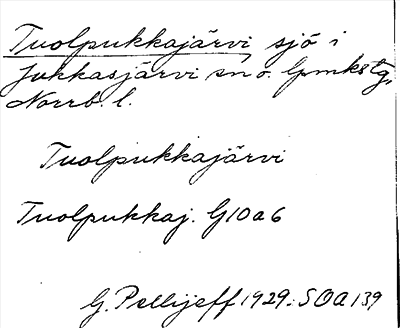 Tuolpukkajärvi sjö i
Jukkasjärvi sn o. lpmkstg,
Norrb. l.
Tuolpukkajärvi
Tuolpukkaj. G10a6
G. Pellijeff 1929: SOA139